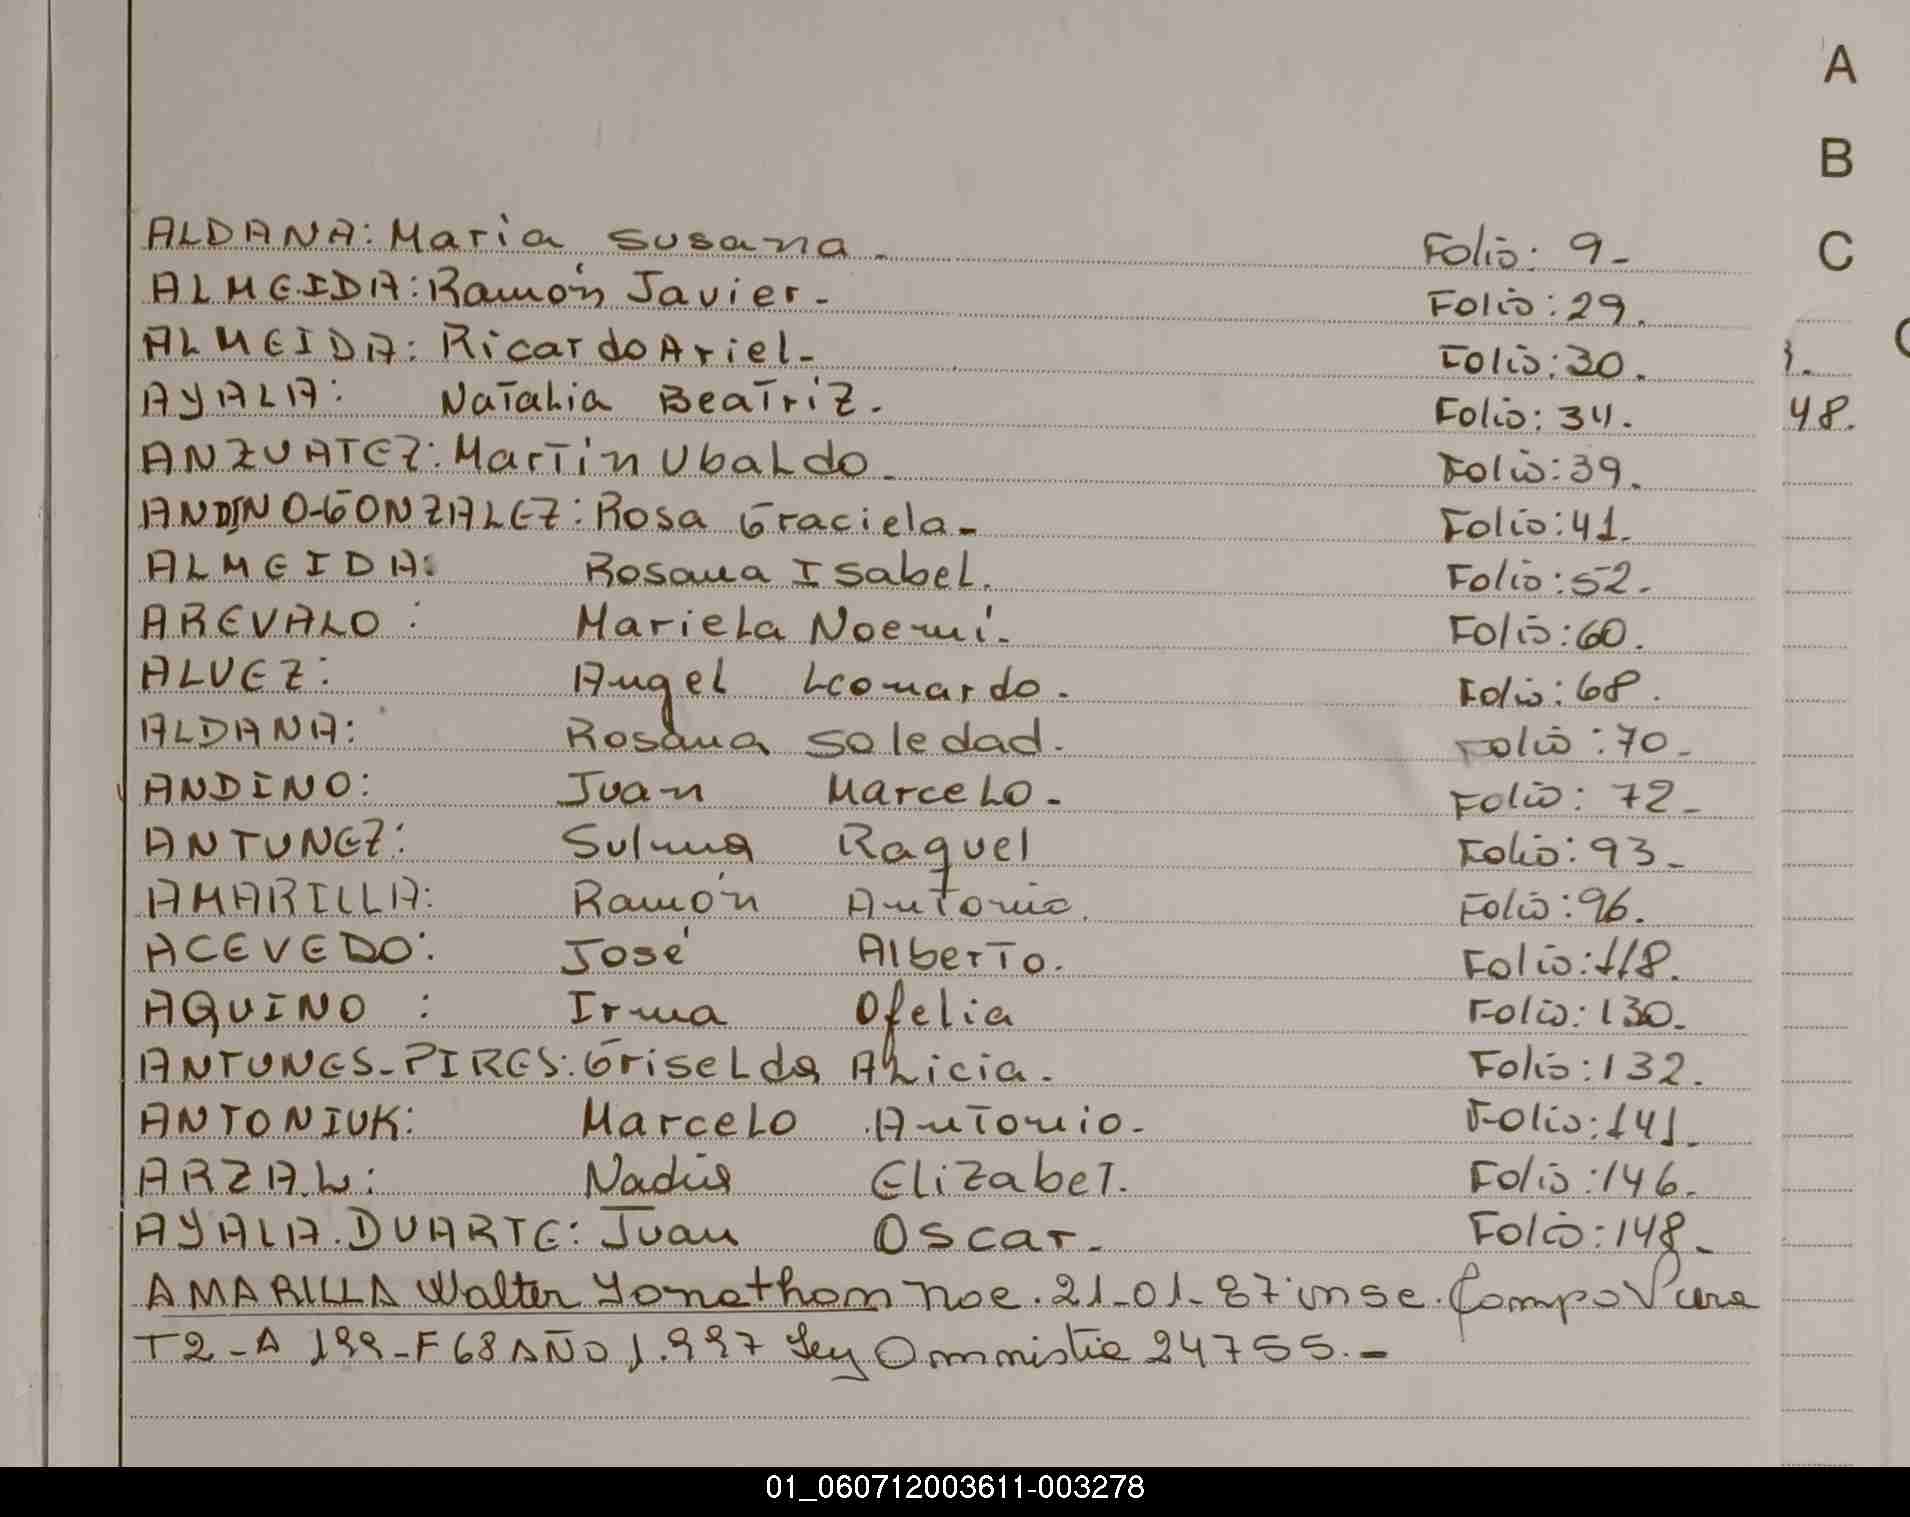 A
B
C
ALDANA: Maria Susana. Folio: 9-
ALMEIDA: Ramón Javier- Folio: 29.
ALMEIDA: Ricardo Ariel- Folio: 30.
AYALA: Natalia Beatriz. Folio: 34. 48.
ANZUATEZ: Martin Ubaldo. Folio: 39.
ANDINO-GONZALEZ: Rosa Graciela- Folio: 41.
ALMEIDA: Rosana Isabel. Folio: 52.
AREVALO: Mariela Noemí. Folio: 60.
ALVEZ: Angel Leonardo. Folio: 68.
ALDANA: Rosana Soledad. Folio: 70-
ANDINO: Juan Marcelo- Folio: 72-
ANTUNEZ: Sulma Raquel Folio: 93-
AMARILLA: Ramón Antonio. Folio: 96.
ACEVEDO: José Alberto. Folio: 118.
AQUINO: Irma Ofelia Folio: 130-
ANTUNES-PIRES: Griselda Alicia. Folio: 132.
ANTONIUK: Marcelo Antonio- Folio: 141.
Nadia Elizabet. Folio: 146.
AYALA.DUARTE: Juan Oscar. Folio: 148-
AMARILLA Walter Yonathan Noe. 21-01-87 inse.
T2-A 199-F68 AÑO 1.997 Ley Omnistia 24755.-
01_060712003611-003278